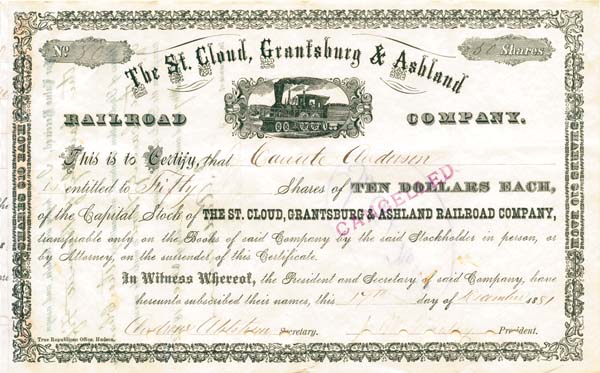 No
50 Shares
The St. Cloud, Grantsburg & Ashland
RAILROAD COMPANY.
This is to Certify, that Canute Anderson
is entitled to Fifty Shares of TEN DOLLARS EACH,
of the Capital Stock of THE ST. CLOUD, GRANTSBURG & ASHLAND RAILROAD COMPANY,
transferable only on the Books of said Company by the said Stockholder in person, or
by Attorney, on the surrender of this Certificate.
In Witness Whereof, the President and Secretary of said Company, have
hereunto subscribed their names, this 17th day of December 1881
Secretary. President.
True Republican Office, Hudson.
SHARES $10 EACH
SHARES $10 EACH
CANCELLED